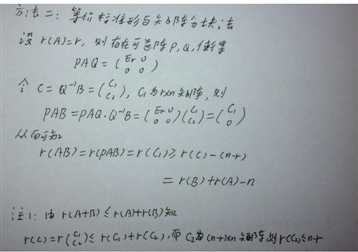 方法二：等价标准形与矩阵分块法
设 r(A)=r, 则存在可逆阵P,Q,使得
PAQ = (Er 0 0 0)
令 C = Q⁻¹B = (C₁ C₂), C₁为r×n矩阵, 则
PAB = PAQ·Q⁻¹B = (Er 0 0 0)(C₁ C₂) = (C₁ 0)
从而知
r(AB) = r(PAB) = r(C₁) ≥ r(C) - (n-r)
= r(B) + r(A) - n
注1: 由 r(A+B) ≤ r(A)+r(B) 知
r(C) = r(C₁ C₂) ≤ r(C₁) + r(C₂), 而 C₂为(n-r)×n矩阵, 则 r(C₂) ≤ n-r